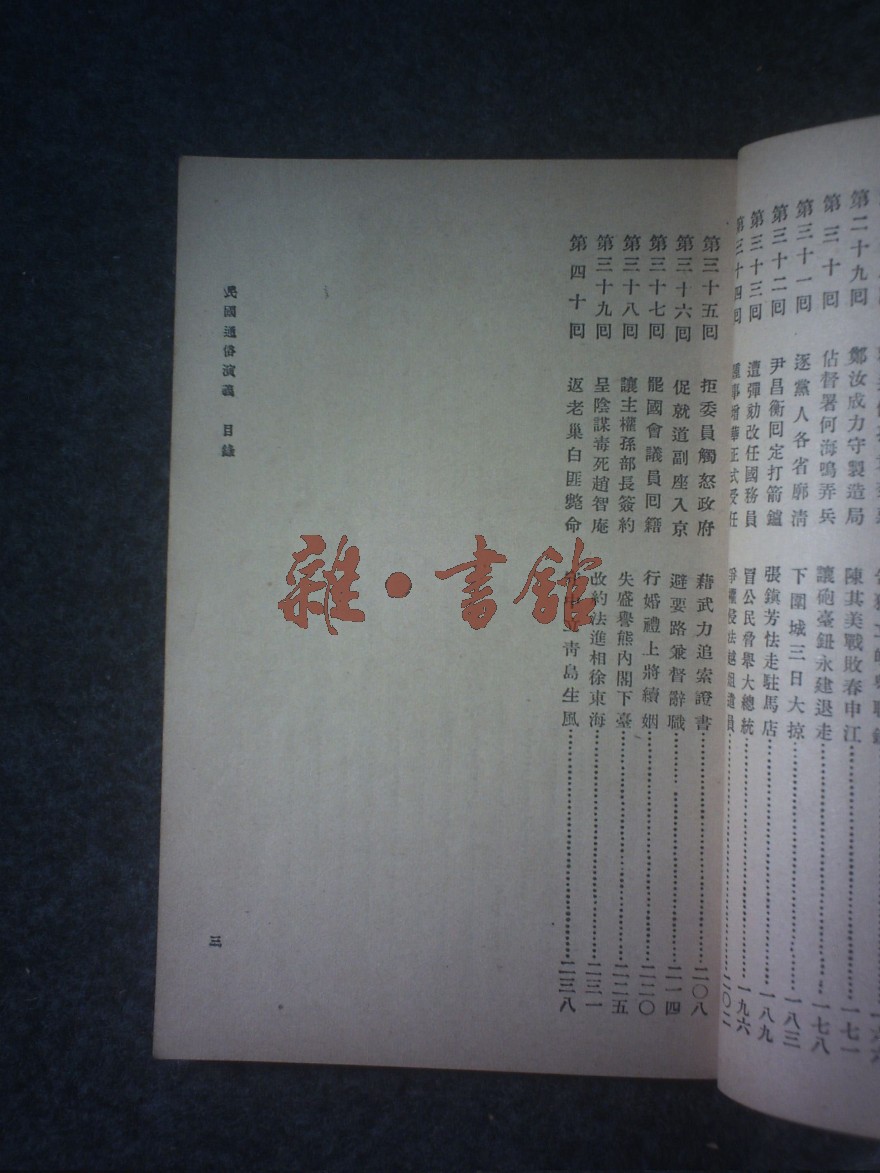 第二十九回 鄭汝成力守製造局 陳其美戰敗春申江 一七一
第三十回 佔督署何海鳴弄兵 讓砲臺鈕永建退走 一七八
第三十一回 逐黨人各省廓清 下圍城三日大掠 一八三
第三十二回 尹昌衡回定打箭鑪 張鎮芳怯走駐馬店 一八九
第三十三回 遭彈劾改任國務員 冒公民脅舉大總統 一九六
第三十四回 正式受任 爭權侵法越俎遣員 二〇二
第三十五回 拒委員觸怒政府 藉武力追索證書 二〇八
第三十六回 促就道副座入京 避要路兼督辭職 二一四
第三十七回 罷國會議員回籍 行婚禮上將續姻 二二〇
第三十八回 讓主權孫部長簽約 失盛譽熊內閣下臺 二二五
第三十九回 呈陰謀毒死趙智庵 改約法進相徐東海 二三一
第四十回 返老巢白匪斃命 青島生風 二三八
民國通俗演義 目錄
三
雜·書館